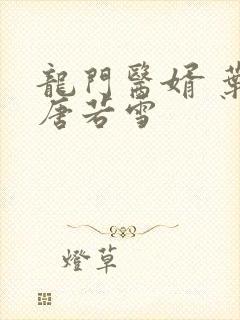 龍門醫婿 葉
唐若雪
燈草